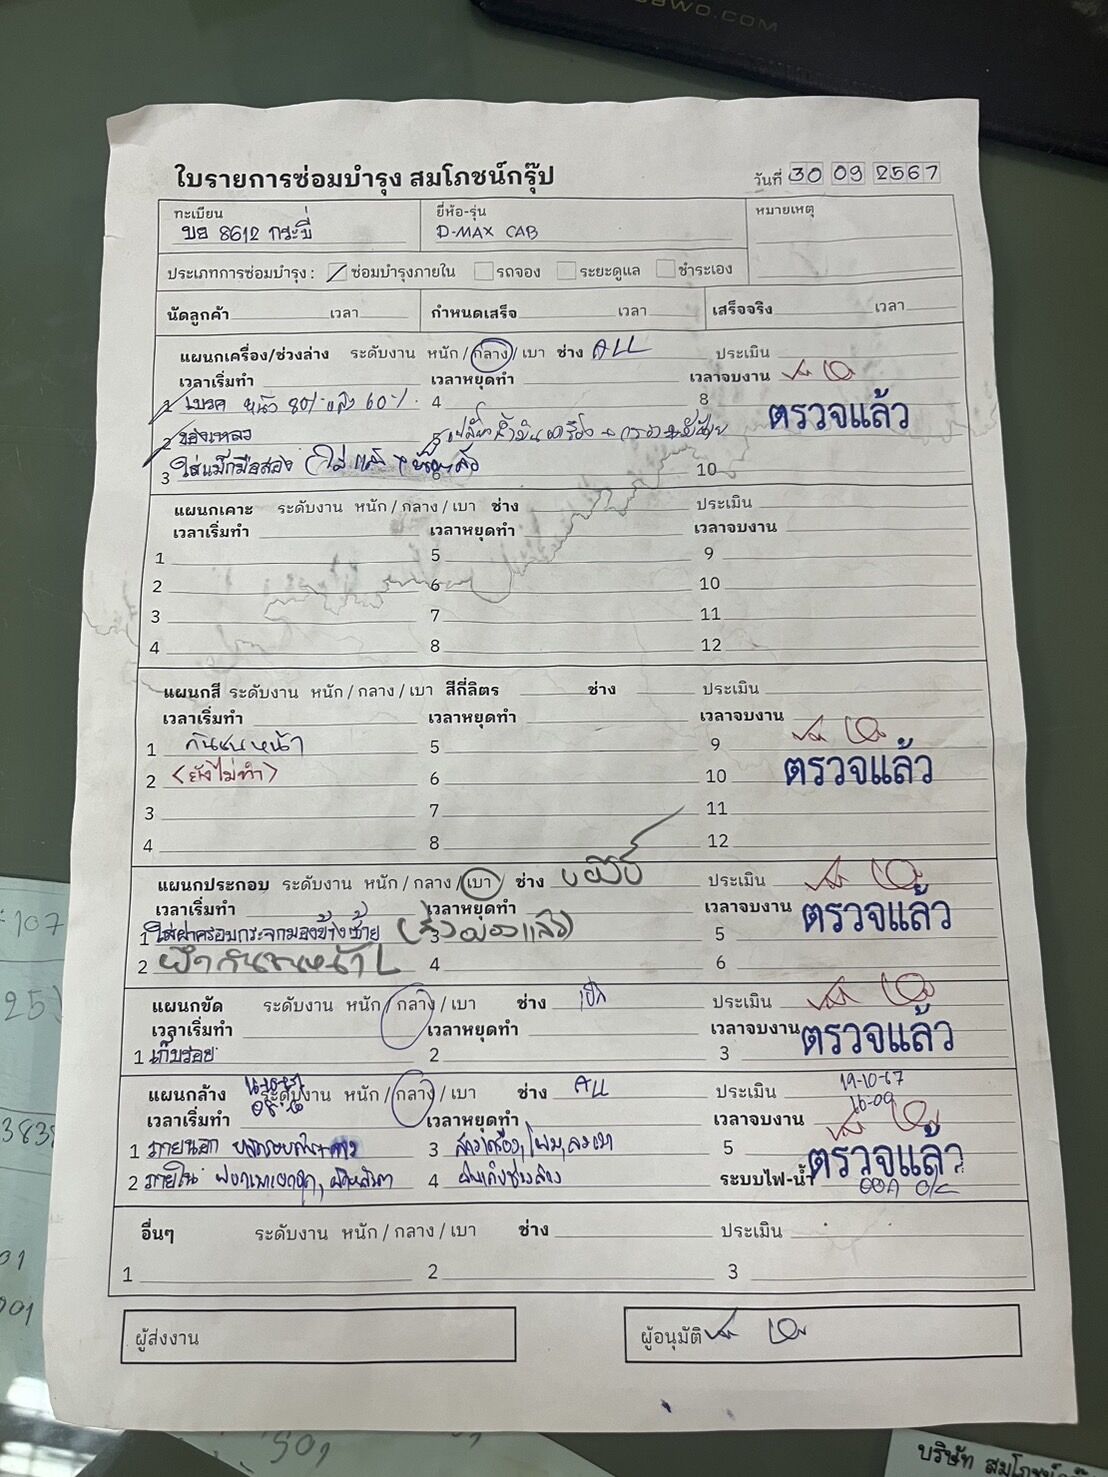 BWO.COM
ใบรายการซ่อมบำรุง สมโภชน์กรุ๊ป
วันที่ 30 09 2567
ทะเบียน
บย 8612 กระบี่
ยี่ห้อ-รุ่น
D-MAX CAB
หมายเหตุ
ประเภทการซ่อมบำรุง : ซ่อมบำรุงภายใน รถจอง ระยะดูแล ชำระเอง
นัดลูกค้า เวลา กำหนดเสร็จ เวลา เสร็จจริง เวลา
แผนกเครื่อง/ช่วงล่าง ระดับงาน หนัก / กลาง / เบา ช่าง ALL ประเมิน
เวลาเริ่มทำ เวลาหยุดทำ เวลาจบงาน
1 เบรค หน้า 80% หลัง 60% 4 8
ตรวจแล้ว
2 ของเหลว 5
3 ใส่แม็กมือสอง 10
แผนกเคาะ ระดับงาน หนัก / กลาง / เบา ช่าง ประเมิน
เวลาเริ่มทำ เวลาหยุดทำ เวลาจบงาน
1 5 9
2 6 10
3 7 11
4 8 12
แผนกสี ระดับงาน หนัก / กลาง / เบา สีกี่ลิตร ช่าง ประเมิน
เวลาเริ่มทำ เวลาหยุดทำ เวลาจบงาน
1 กันชนหน้า 5 9
2 (ยังไม่ทำ) 6 10 ตรวจแล้ว
3 7 11
4 8 12
แผนกประกอบ ระดับงาน หนัก / กลาง / เบา ช่าง ประเมิน
เวลาเริ่มทำ เวลาหยุดทำ เวลาจบงาน ตรวจแล้ว
1 ใส่ฝาครอบกระจกมองข้างซ้าย (สั่งของแล้ว) 3 5
2 กันชนหน้า L 4 6
แผนกขัด ระดับงาน หนัก / กลาง / เบา ช่าง ประเมิน
เวลาเริ่มทำ เวลาหยุดทำ เวลาจบงาน ตรวจแล้ว
1 เก็บรอย 2 3
แผนกล้าง ระดับงาน หนัก / กลาง / เบา ช่าง ALL ประเมิน 19-10-67
16-00
เวลาเริ่มทำ เวลาหยุดทำ เวลาจบงาน
1 ภายนอก 3 5 ตรวจแล้ว
2 ภายใน 4 ระบบไฟ-น้ำ
อื่นๆ ระดับงาน หนัก / กลาง / เบา ช่าง ประเมิน
1 2 3
ผู้ส่งงาน
ผู้อนุมัติ
107
บริษัท